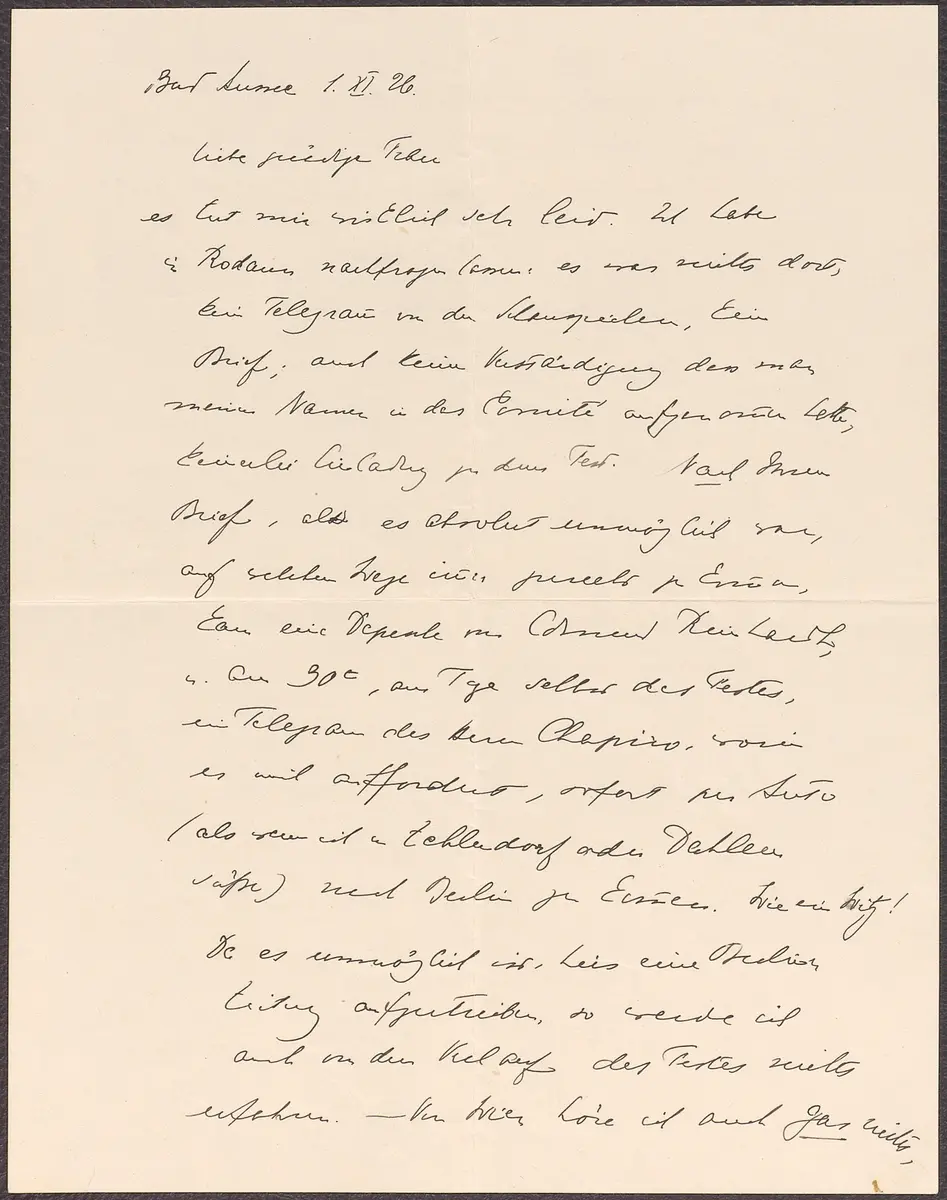 Bad Aussee 1. XI. 26.
liebe gnädige Frau
es tut mir wirklich sehr leid. Ich habe
in Rodaun nachfragen lassen: es war nichts dort,
kein Telegram von den Schauspielern, kein
Brief; auch keine Verständigung dass man
meinen Namen in das Comité aufgenommen hätte,
keinerlei Einladung zu dem Fest. Nach Ihrem
Brief, als es absolut unmöglich war,
auf welchem Wege immer zurecht zu kommen,
kam eine Depesche von Edmund Reinhardt,
u. am 30ten, am Tage selbst des Festes,
ein Telegram des Herrn Chapiro, worin
er mich auffordert, sofort per Auto
(als wenn ich in Zehlendorf oder Dahlem
säße) nach Berlin zu kommen. Wie ein Witz!
Da es unmöglich ist, hier eine Berliner
Zeitung aufzutreiben, so werde ich
auch von dem Verlauf des Festes nichts
erfahren. — Von Wien höre ich auch gar nichts,